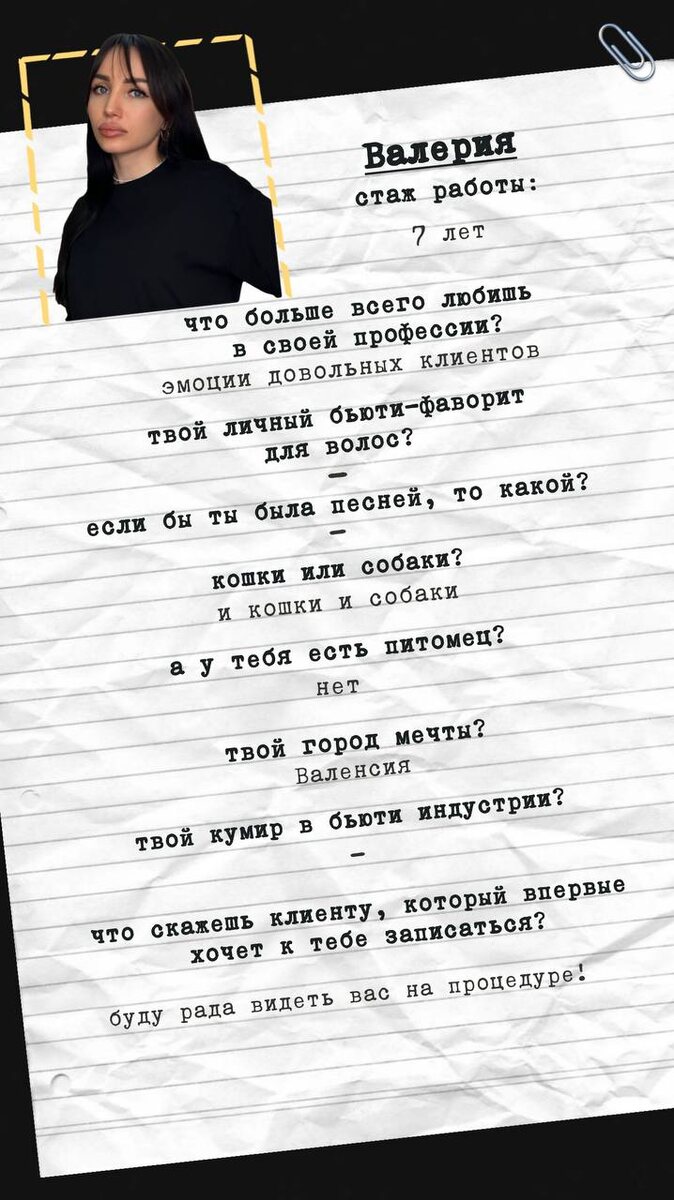 Валерия
стаж работы:
7 лет
что больше всего любишь
в своей профессии?
эмоции довольных клиентов
твой личный бьюти-фаворит
для волос?
–
если бы ты была песней, то какой?
–
кошки или собаки?
и кошки и собаки
а у тебя есть питомец?
нет
твой город мечты?
Валенсия
твой кумир в бьюти индустрии?
–
что скажешь клиенту, который впервые
хочет к тебе записаться?
буду рада видеть вас на процедуре!